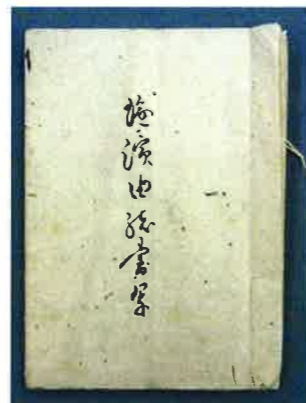 塩濱由緒書写